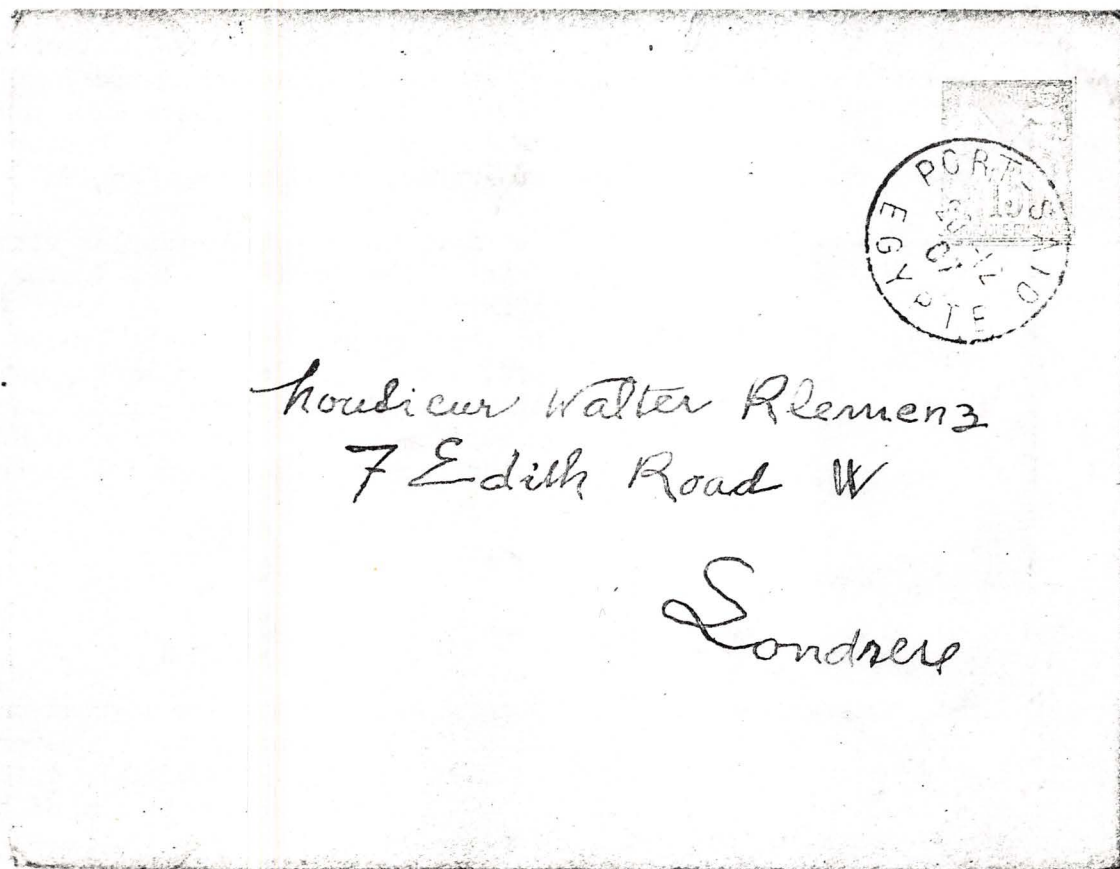 PORT-SAID
15
28 XII
01
EGYPTE
Monsieur Walter Klemenz
7 Edith Road W
Londres